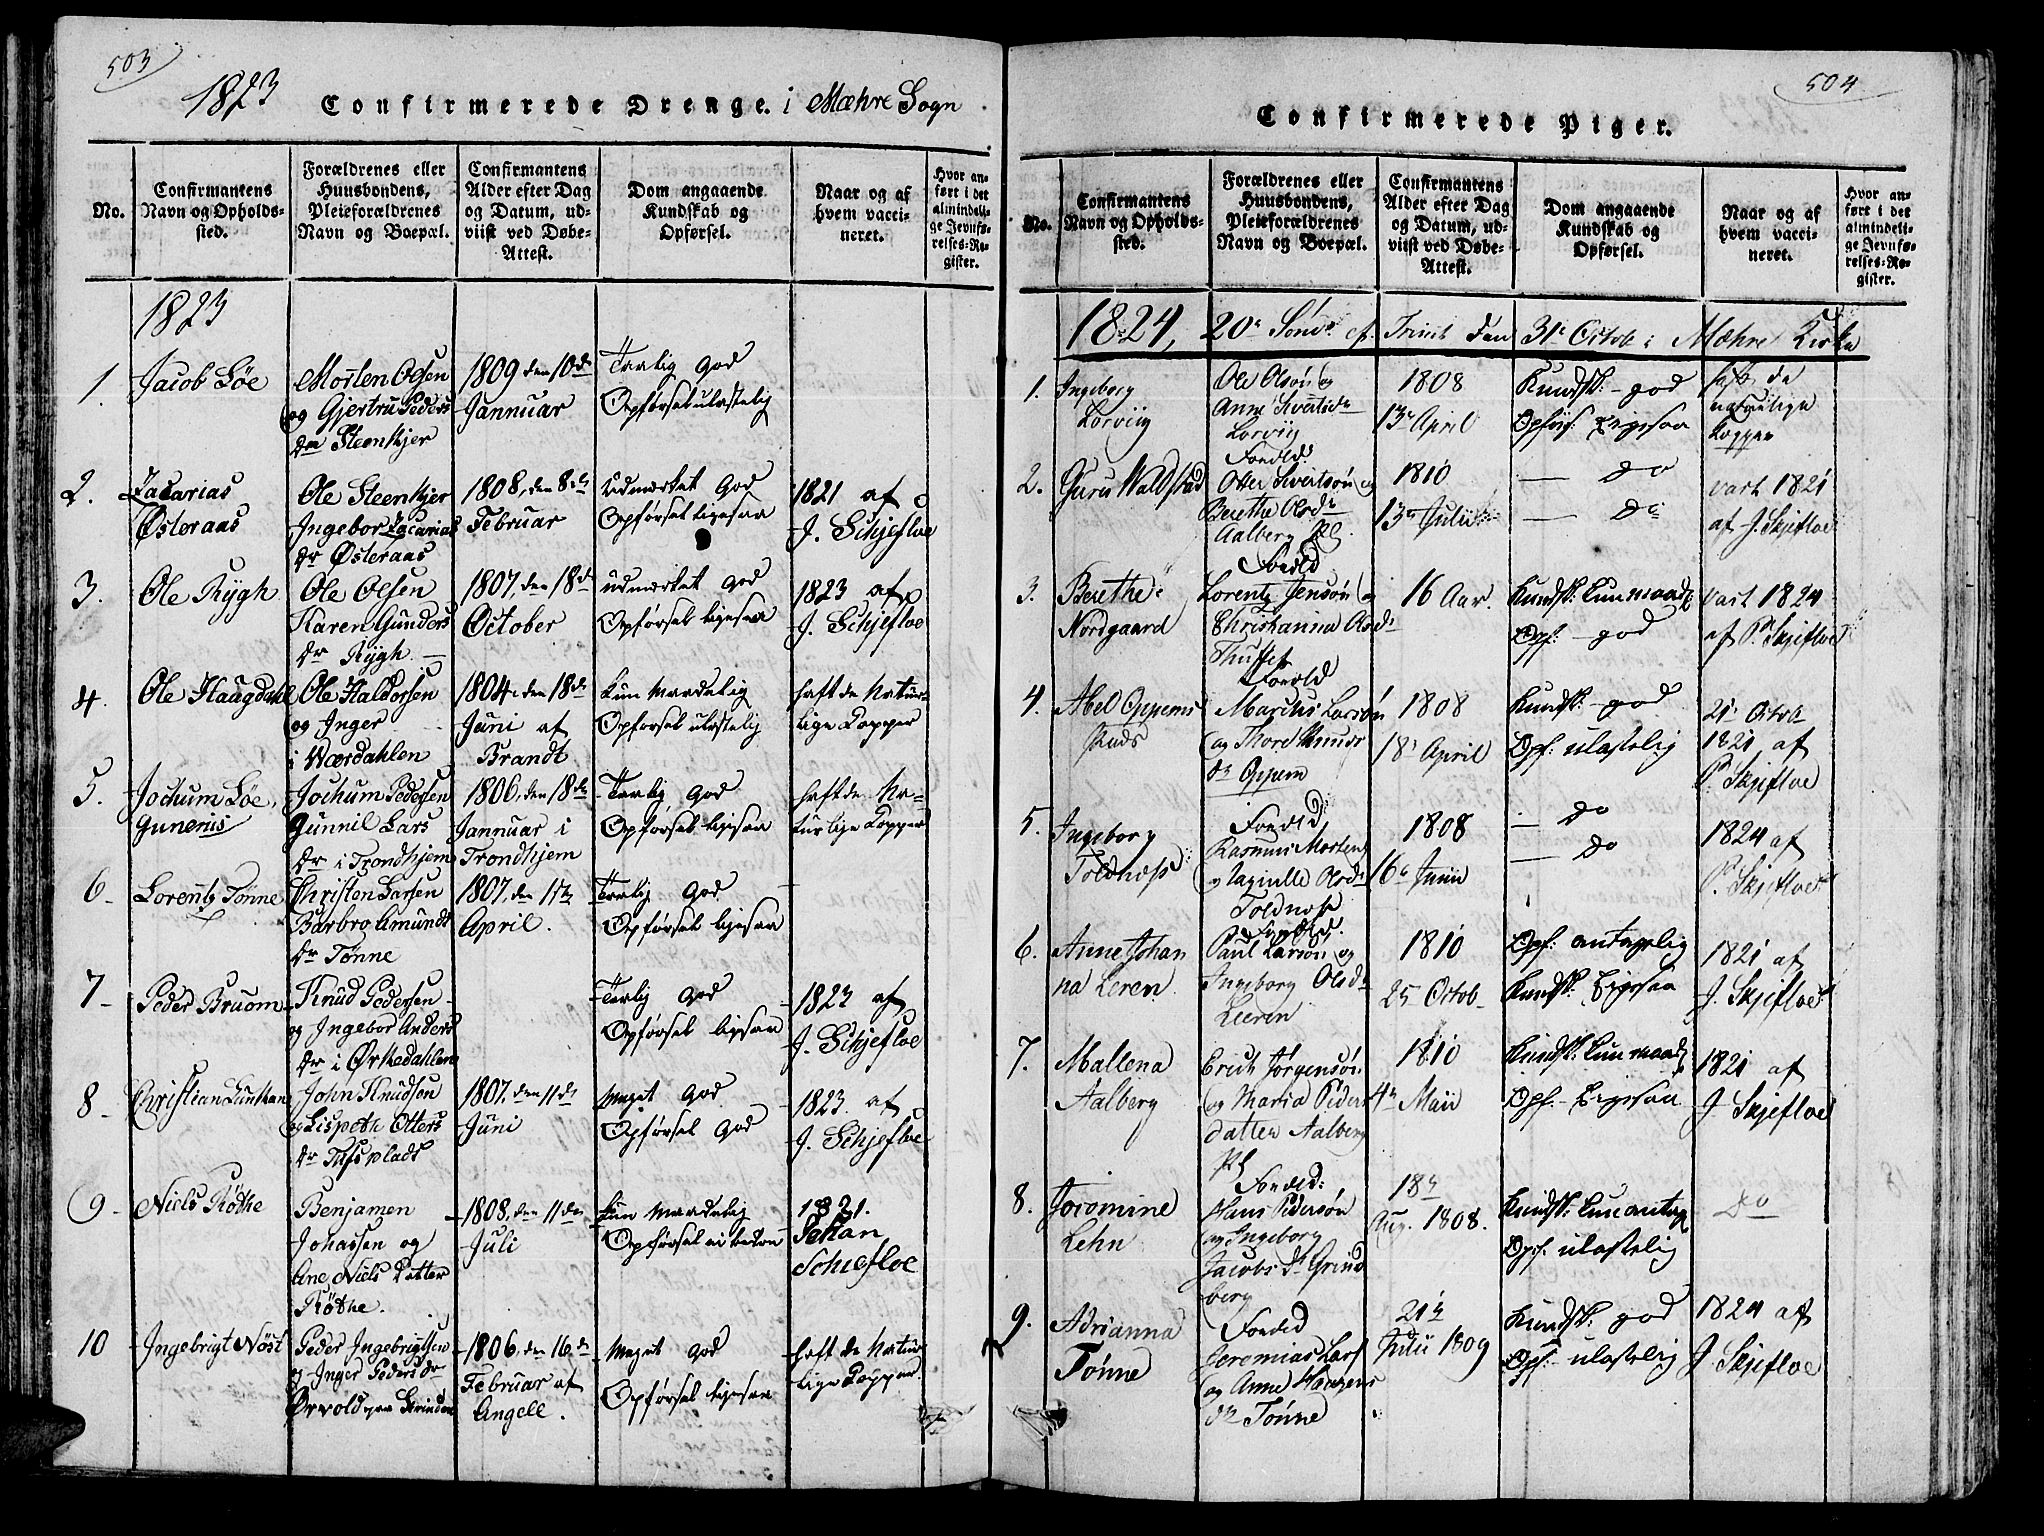 503
1823 Confirmerede Drenge. i Mæhre Sogn
No.
Confirmantens
Navn og Opholds-
sted.
Forældrenes eller
Huusbondens,
Pleieforældrenes
Navn og Boepæl.
Confirmantens
Alder efter Dag
og Datum, ud-
viist ved Døbe-
Attest.
Dom angaaende
Kundskab og
Opførsel.
Naar og af
hvem vacci-
neret.
Hvor an-
ført i det
almindeli-
ge Jevnfø-
relses-Re-
gister.
1823
1.
Jacob Løe
Morten Olsen
og Gjertru Peders
Dr Steenkjer
1809 den 10de
Jannuar
Tarlig God
Opførsel ulastelig
2.
Zacarias
Østeraas
Ole Steenkjer
Ingebor Zacarias
Dr Østeraas
1808, den 8de
Februar
Udmærket God
Opførsel ligesaa
1821 af
J. Schjefloe
3.
Ole Rygh
Ole Olsen
Karen Gunders
Dr Rygh.
1807, den 18de
October
udmærket God
Opførsel ligesaa
1823 af
J. Schjefloe
4.
Ole Haugdahl
Ole Haldorsen
og Inger
i Værdahlen
1804 den 18de
Juni af
Brandt
kun Maadelig
Opførsel ulastelig
haft de Natur-
lige Kopper
5.
Jochum Løe,
Gunerius
Jochum Pedersen
Gunnil Lars
Dr i Trondhjem
1806, den 18de
Jannuar i
Trondhjem
Tarlig God
Opførsel ligesaa
haft de Na-
turlige Kopper
6
Lorentz Tønne
Christen Larsen
Barbro Amunds
Dr Tønne
1807, den 11te
April.
Tarlig God
Opførsel ligesaa
7
Peder Bruom
Knud Pedersen
og Ingebor Anders
Dr i Ørkedahlen
Tarlig God
Opførsel ligesaa
1823 af
J. Schjefloe
8
Christian
John Knudsen
og Lispeth Otters
Dr Tufsplads
1807, den 11de
Juni
Meget God
Opførsel God
1823. af
J. Schjefloe
9
Niels Røthe
Benjamen
Johassen og
Ane Niels Datter
Røthe.
1808, den 11den
Juli
kun Maadelig
Opførsel
1821.
Johan
Schiefloe
10
Ingebrigt Nøst
Peder Ingebrigtsen
og Inger Peders dr
1806, den 16de
Februar af
Angell.
Meget God
Opførsel ligesaa
haft de Natur
lige Kopper.
504
Confirmerede Piger.
No.
Confirmantens
Navn og Opholds-
sted.
Forældrenes eller
Huusbondens,
Pleieforældrenes
Navn og Boepæl.
Confirmantens
Alder efter Dag
og Datum, ud-
viist ved Døbe-
Attest.
Dom angaaende
Kundskab og
Opførsel.
Naar og af
hvem vacci-
neret.
Hvor an-
ført i det
almindeli-
ge Jevnfø-
relses-Re-
gister.
1824, 20de Sønd. ef. Trinit. den 31te Octob: i Mæhre Kirke
1.
Ingeborg
Lorviig
Ole Olsøn og
Anne Sivertsdr
Lorviig
1808
13de April
Kundsk: god
Opførs: ligesaa
haft de
naturlige
kopper
2.
Guru Waldstad
Foreld.
Otter Sivertsøn og
Berethe Olsdr
Aalberg Pl.
1810
13de Julii
Do
Do
vact 1821
af J. Skjefloe
3.
Berethe
Nordgaard
Foreld
Lorentz Jensøn og
Christianna Olsdr
1 6 Aar.
Kundsk: kun maad.
Opf: god
vact 1824
af P. Skjefloe
4.
Abel Oppems
Foreld
Marius Larsøn
og Thore Knuds
dr Oppem
1808
18de April
Kundsk: god
Opf: ulastelig
21de Octob
1821 af
P. Skjefloe
5.
Ingeborg
Toldnæs
Foreld,
Rasmus Morten
og Olsdr
Toldnæs
1808
16de Junii
Do
Do
1824 af
P. Skjefloe
6.
Anne Johan
na Leren
Foreld.
Paul Larsøn og
Ingeborg Olsdr
Leeren
1810
25 Octob
Opf: antagelig
Kundsk: ligesaa
1821 af
J. Skjefloe
7.
Mallena
Aalberg
Erich Jørgensøn
og Maria Peders
datter Aalberg
Pl
1810
4de Maii
Kundsk: kun maad.
Opf: ligesaa
1821 af
J Skjefloe
8.
Joromine
Lehn
Foreld:
Hans Pedersøn
og Ingeborg
Jacobs dr Grind
berg
18de
Aug. 1808.
Kundsk: kun antag
Opf: ulastelig
Do
9.
Adrianna
Tønne
Foreld
Jeremias Lars
og Anne Haagens
dr Tønne
21de
Julii 1809
Kundsk: god
Opf: ulastelig
1824 af
J Skjefloe